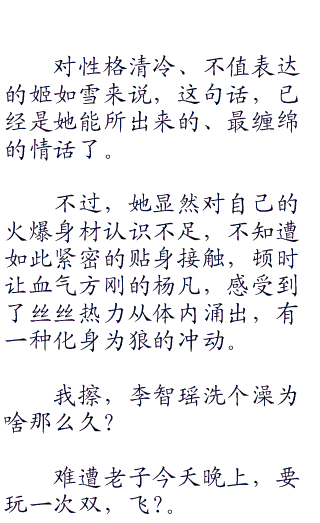 对性格清冷、不值表达
的姬如雪来说，这句话，已
经是她能所出来的、最缠绵
的情话了。
不过，她显然对自己的
火爆身材认识不足，不知遭
如此紧密的贴身接触，顿时
让血气方刚的杨凡，感受到
了丝丝热力从体内涌出，有
一种化身为狼的冲动。
我擦，李智瑶洗个澡为
啥那么久？
难遭老子今天晚上，要
玩一次双，飞？。